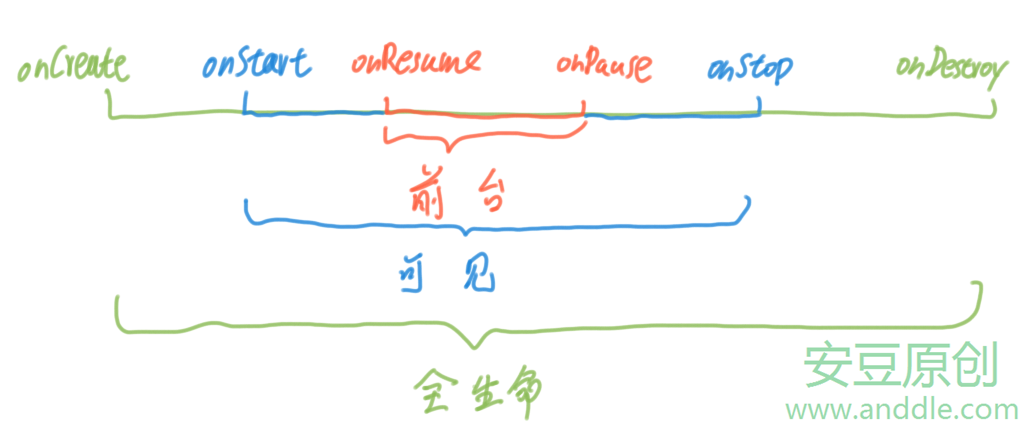 onCreate onStart onResume onPause onStop onDestroy
前台
可见
全生命
安豆原创
www.anddle.com